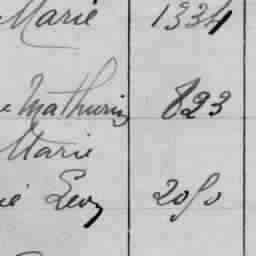 Marie 1334
e Mathurin 823
Marie
ié Levy 2050